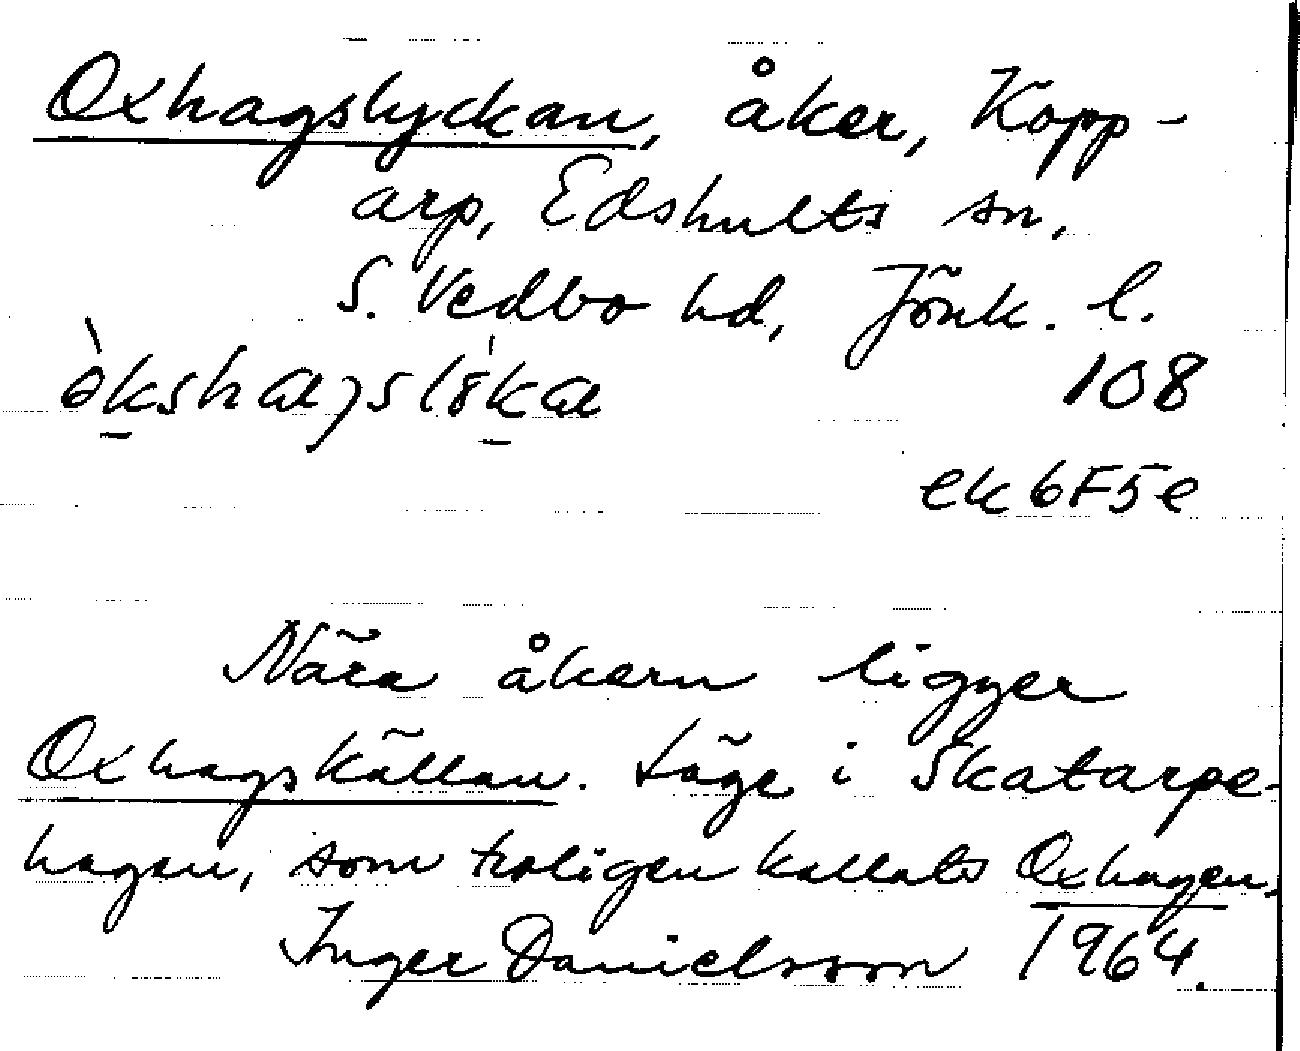 Oxhagslyckan, åker, Kopp-
arp, Edshults sn,
S. Vedbo hd, Jönk. l.
108
ek 6F5e
Nära åkern ligger
Oxhagskällan. Läge i Skatarpe-
hagen, som troligen kallats Oxhagen.
Inger Danielsson 1964.